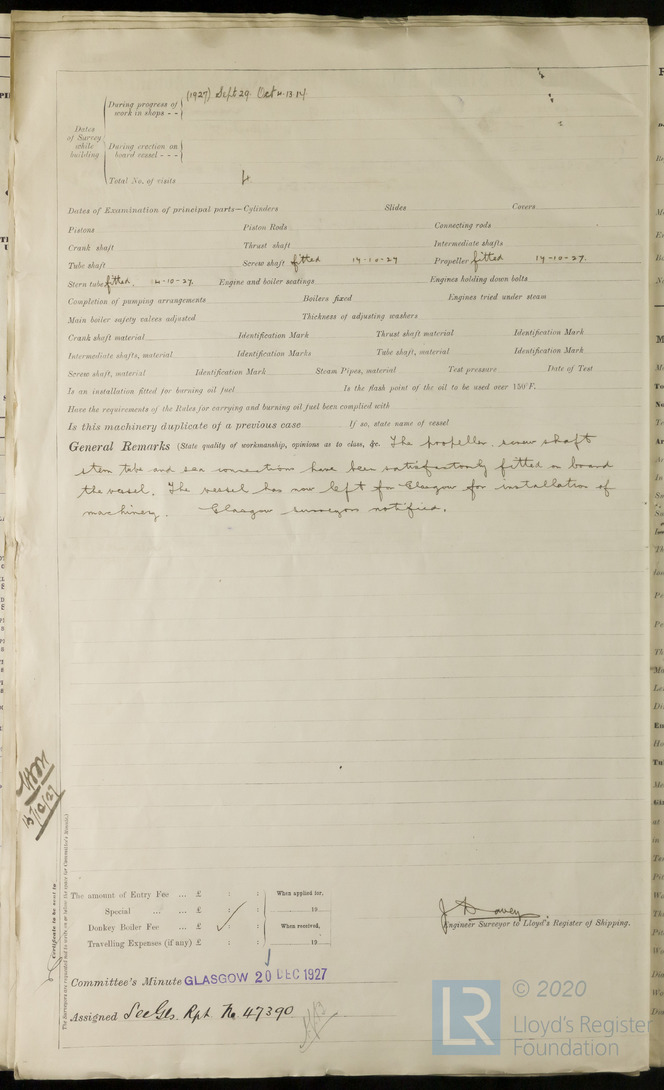 (1927) Sept 29. Oct 4. 13. 14.
During progress of work in shops - -
Dates of Survey while building
During erection on board vessel - - -
Total No. of visits 4.
Dates of Examination of principal parts—Cylinders Slides Covers
Pistons Piston Rods Connecting rods
Crank shaft Thrust shaft Intermediate shafts
Tube shaft Screw shaft fitted 14-10-27 Propeller fitted 14-10-27.
Stern tube fitted. 14-10-27. Engine and boiler seatings Engines holding down bolts
Completion of pumping arrangements Boilers fixed Engines tried under steam
Main boiler safety valves adjusted Thickness of adjusting washers
Crank shaft material Identification Mark Thrust shaft material Identification Mark
Intermediate shafts, material Identification Marks Tube shaft, material Identification Mark
Screw shaft, material Identification Mark Steam Pipes, material Test pressure Date of Test
Is an installation fitted for burning oil fuel Is the flash point of the oil to be used over 150°F.
Have the requirements of the Rules for carrying and burning oil fuel been complied with
Is this machinery duplicate of a previous case If so, state name of vessel
General Remarks (State quality of workmanship, opinions as to class, &c. The propeller, screw shaft
stern tube and sea connections have been satisfactorily fitted on board
the vessel. The vessel has now left for Glasgow for installation of
machinery. Glasgow surveyors notified.
15/10/27
Certificate to be sent to
The Surveyors are requested not to write on or below the space for Committee's Minute.)
The amount of Entry Fee ... £ : : When applied for,
Special ... ... £ : : 19
Donkey Boiler Fee ... £ : : When received,
Travelling Expenses (if any) £ : : 19
Engineer Surveyor to Lloyd's Register of Shipping.
Committee's Minute GLASGOW 20 DEC 1927
Assigned See Gls. Rpt. No. 47390
LR
© 2020
Lloyd's Register
Foundation